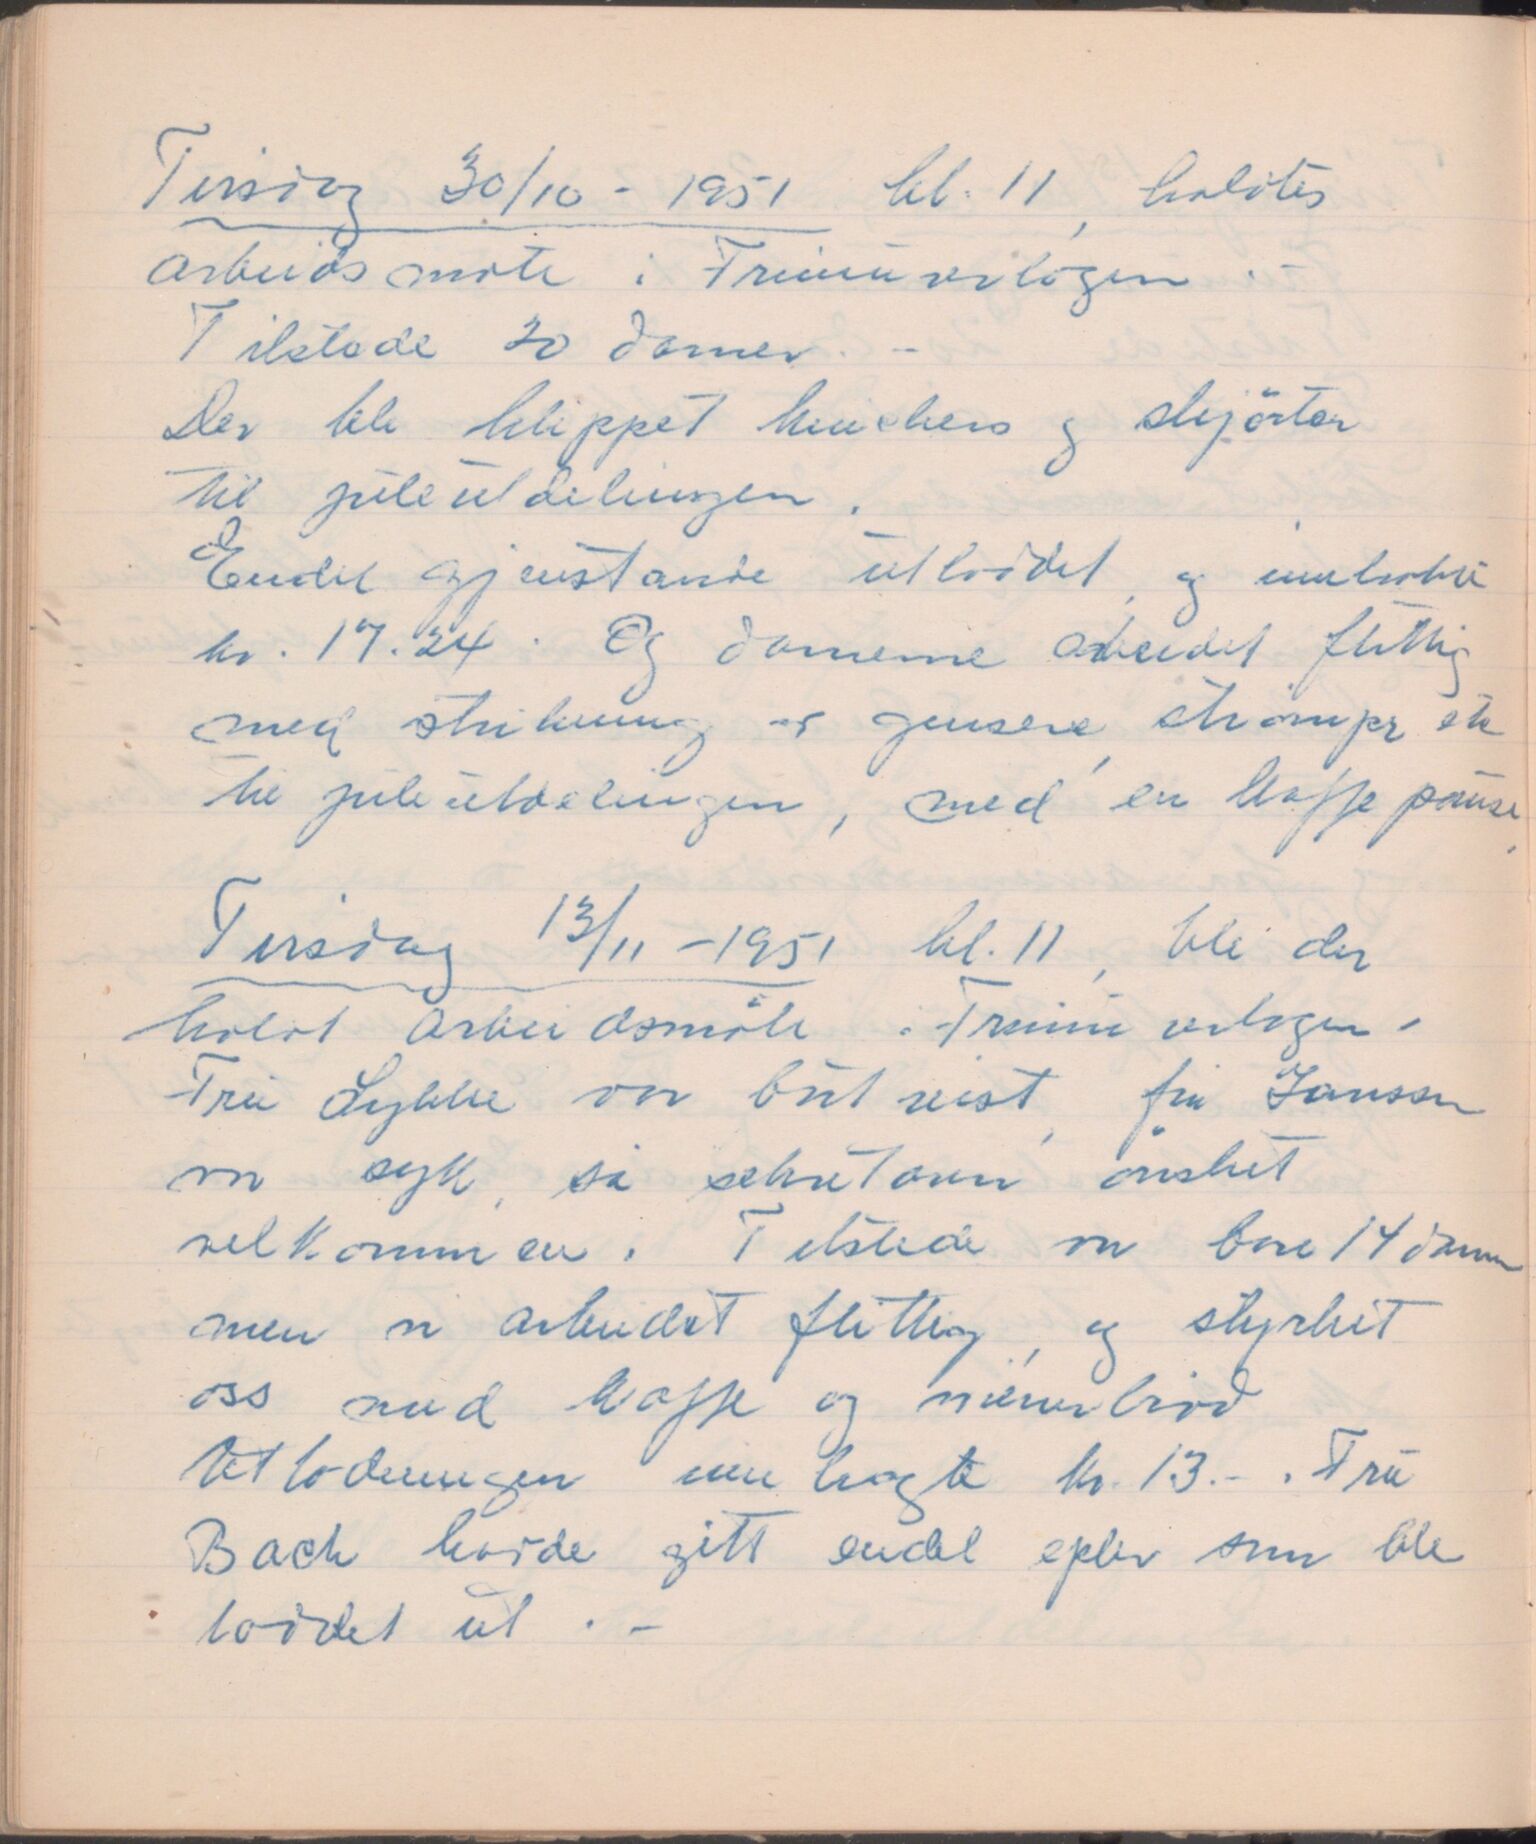 Tirsdag 30/10 - 1951 kl. 11, holdtes
arbeidsmøte i Frimurerlogen . -
Tilstede 20 damer. -
Der ble klippet knickers og skjörter
til juleutdelingen.
Endel gjenstande utloddet, og innbrakte
kr. 17.24. Og damerne arbeidet flittig
med strikning av gensere, strömper etc
til juleutdelingen, med en kaffe pause.
Tirsdag 13/11 - 1951 kl. 11, ble der
holdt arbeidsmöte i Frimurerlogen.
Fru Lykke var bortreist, fru Janssen
var syk, så sekretæren önsket
velkommen. Tilstede var bare 14 damer
men vi arbeidet flittig, og styrket
oss med kaffe og wienerbröd
Utlodningen innbragte kr. 13.- . Fru
Bach hadde gitt endel epler som ble
loddet ut . -